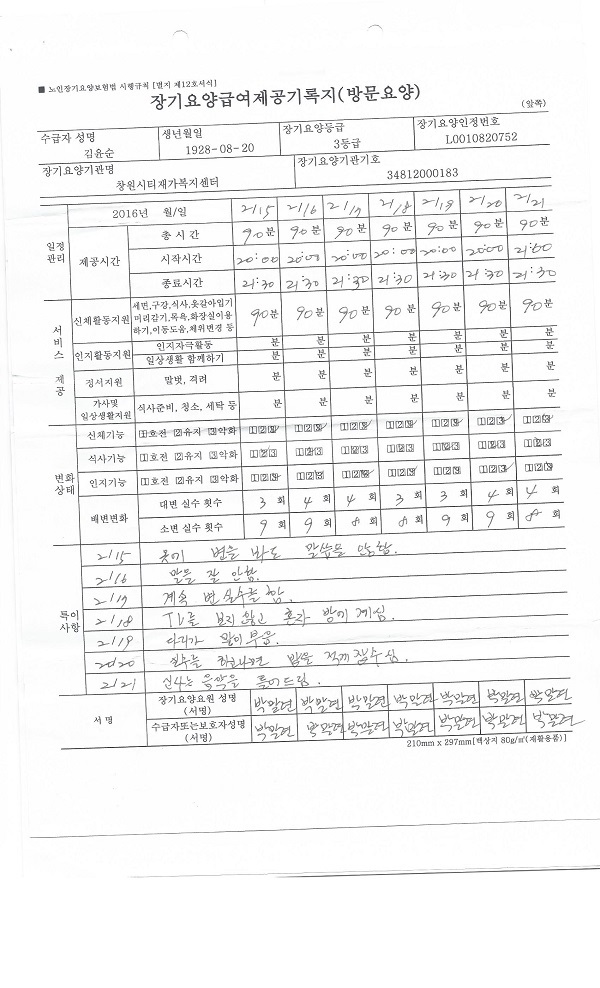 ■ 노인장기요양보험법 시행규칙 [별지 제12호서식]
장기요양급여제공기록지(방문요양)
(앞쪽)
수급자 성명 생년월일 장기요양등급 장기요양인정번호
김윤순 1928-08-20 3등급 L0010820752
장기요양기관명 장기요양기관기호
창원시티재가복지센터 34812000183
2016년 월/일 2/15 2/16 2/17 2/18 2/19 2/20 2/21
일정관리 제공시간 총 시 간 90분 90분 90분 90분 90분 90분 90분
시작시간 20:00 20:00 20:00 20:00 20:00 20:00 21:00
종료시간 21:30 21:30 21:30 21:30 21:30 21:30 21:30
서비스 제공 신체활동지원 세면,구강,식사,옷갈아입기 90분 90분 90분 90분 90분 90분 90분
머리감기,목욕,화장실이용
하기,이동도움,체위변경 등
인지활동지원 인지자극활동 분 분 분 분 분 분 분
일상생활 함께하기 분 분 분 분 분 분 분
정서지원 말벗, 격려 분 분 분 분 분 분 분
가사및 일상생활지원 식사준비, 청소, 세탁 등 분 분 분 분 분 분 분
변화상태 신체기능 1호전 2유지 3악화 123 123 123 123 123 123 123
식사기능 1호전 2유지 3악화 123 123 123 123 123 123 123
인지기능 1호전 2유지 3악화 123 123 123 123 123 123 123
배변변화 대변 실수 횟수 3 회 4 회 4 회 3 회 3 회 4 회 4 회
소변 실수 횟수 9 회 9 회 8 회 8 회 9 회 9 회 8 회
특이사항 2/15 옷에 변을 봐도 말씀을 않함.
2/16 말을 잘 안함.
2/17 계속 변 실수를 함.
2/18 TV를 보지 않고 혼자 방에 계심.
2/19 다리가 많이 부음.
20/20 밥을 적게 잡수심.
2/21 신나는 음악을 틀어드림.
서 명 장기요양요원 성명 (서명) 박말련 박말련 박말련 박말련 박말련 박말련 박말련
수급자또는보호자성명 (서명) 박말련 박말련 박말련 박말련 박말련 박말련 박말련
210mm x 297mm[백상지 80g/㎡(재활용품)]